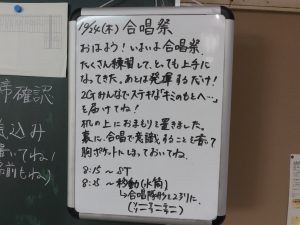 10/24(木) 合唱祭
おはよう！いよいよ合唱祭。
たくさん練習して、とっても上手に
なってきた。あとは発揮するだけ！
2Gみんなでステキな「キミのもとへ…」
を届けてね！
机の上におまもりを置きました。
裏に、合唱で意識することを書いて
胸ポケットに入っておいてね。
8:15～ST
8:25～移動(水筒)
→合唱隊形とスムーズに
席確認
込み
いてね！
前もね！